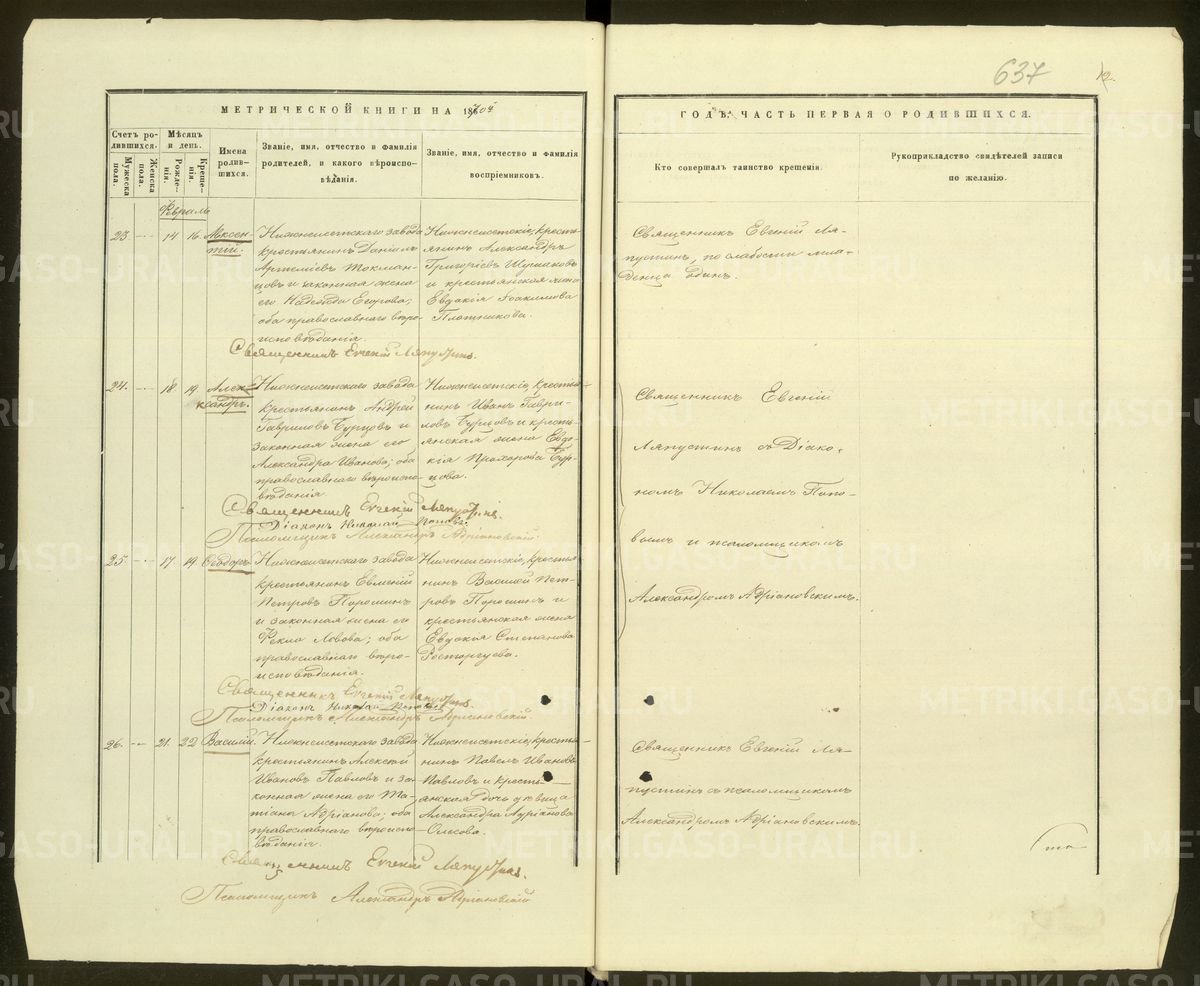 637
12.
МЕТРИЧЕСКОЙ КНИГИ НА 1904
ГОДЪ: ЧАСТЬ ПЕРВАЯ О РОДИВШИХСЯ.
Счетъ родившихся.
Мужеска пола.
Женска пола.
Мѣсяцъ и день.
Рожденія.
Крещенія.
Имена родившихся.
Званіе, имя, отчество и фамилія
родителей, и какого вѣроиспо-
вѣданія.
Званіе, имя, отчество и фамилія
воспріемниковъ.
Кто совершалъ таинство крещенія.
Рукоприкладство свидѣтелей записи
по желанію.
Февраль
23. 14 16. Авксен-
тій.
Нижнеисетскаго завода
крестьянинъ Даніилъ
Артеміевъ Токман-
цовъ и законная жена
его Надежда Егорова;
оба православнаго вѣро-
исповѣданія.
Нижнеисетскіе, кресть-
янинъ Александръ
Григоріевъ Шушаковъ
и крестьянская жена
Евдокія Іоакимова
Плотникова.
Священникъ Евгеній Ля-
пустинъ, по слабости мла-
денца одинъ.
Священникъ Евгеній Ляпустинъ.
24. 18 19. Алек-
ксандръ.
Нижнеисетскаго завода
крестьянинъ Андрей
Гавриловъ Бурцовъ и
законная жена его
Александра Иванова; оба
православнаго вѣроиспо-
вѣданія
Нижнеисетскіе, крестья-
нинъ Иванъ Гаври-
ловъ Бурцовъ и кресть-
янская жена Евдо-
кія Прохорова Бур-
цова.
Священникъ Евгеній
Ляпустинъ съ Діако-
номъ Николаемъ Попо-
вымъ и псаломщикомъ
Александромъ Адріановскимъ.
Священникъ Евгеній Ляпустинъ.
Діаконъ Николай Поповъ.
Псаломщикъ Александръ Адріановскій.
25. 17 19 Ѳеодоръ.
Нижнеисетскаго завода
крестьянинъ Евгеній
Петровъ Порошинъ
и законная жена его
Фекла Львова; оба
православнаго вѣро-
исповѣданія.
Нижнеисетскіе, крестья-
нинъ Василій Пет-
ровъ Порошинъ и
крестьянская жена
Евдокія Степанова
Расторгуева.
Священникъ Евгеній Ляпустинъ.
Діаконъ Николай Поповъ.
Псаломщикъ Александръ Адріановскій.
26. 21. 22 Василій.
Нижнеисетскаго завода
крестьянинъ Алексѣй
Ивановъ Павловъ и за-
конная жена его Та-
тіана Адріанова; оба
православнаго вѣроиспо-
вѣданія.
Нижнеисетскіе, крестья-
нинъ Павелъ Ивановъ
Павловъ и кресть-
янская дочь дѣвица
Александра Адріанова
Священникъ Евгеній Ля-
пустинъ съ псаломщикомъ
Александромъ Адріановскимъ.
Священникъ Евгеній Ляпустинъ.
Псаломщикъ Александръ Адріановскій
METRIKI.GASO-URAL.RU